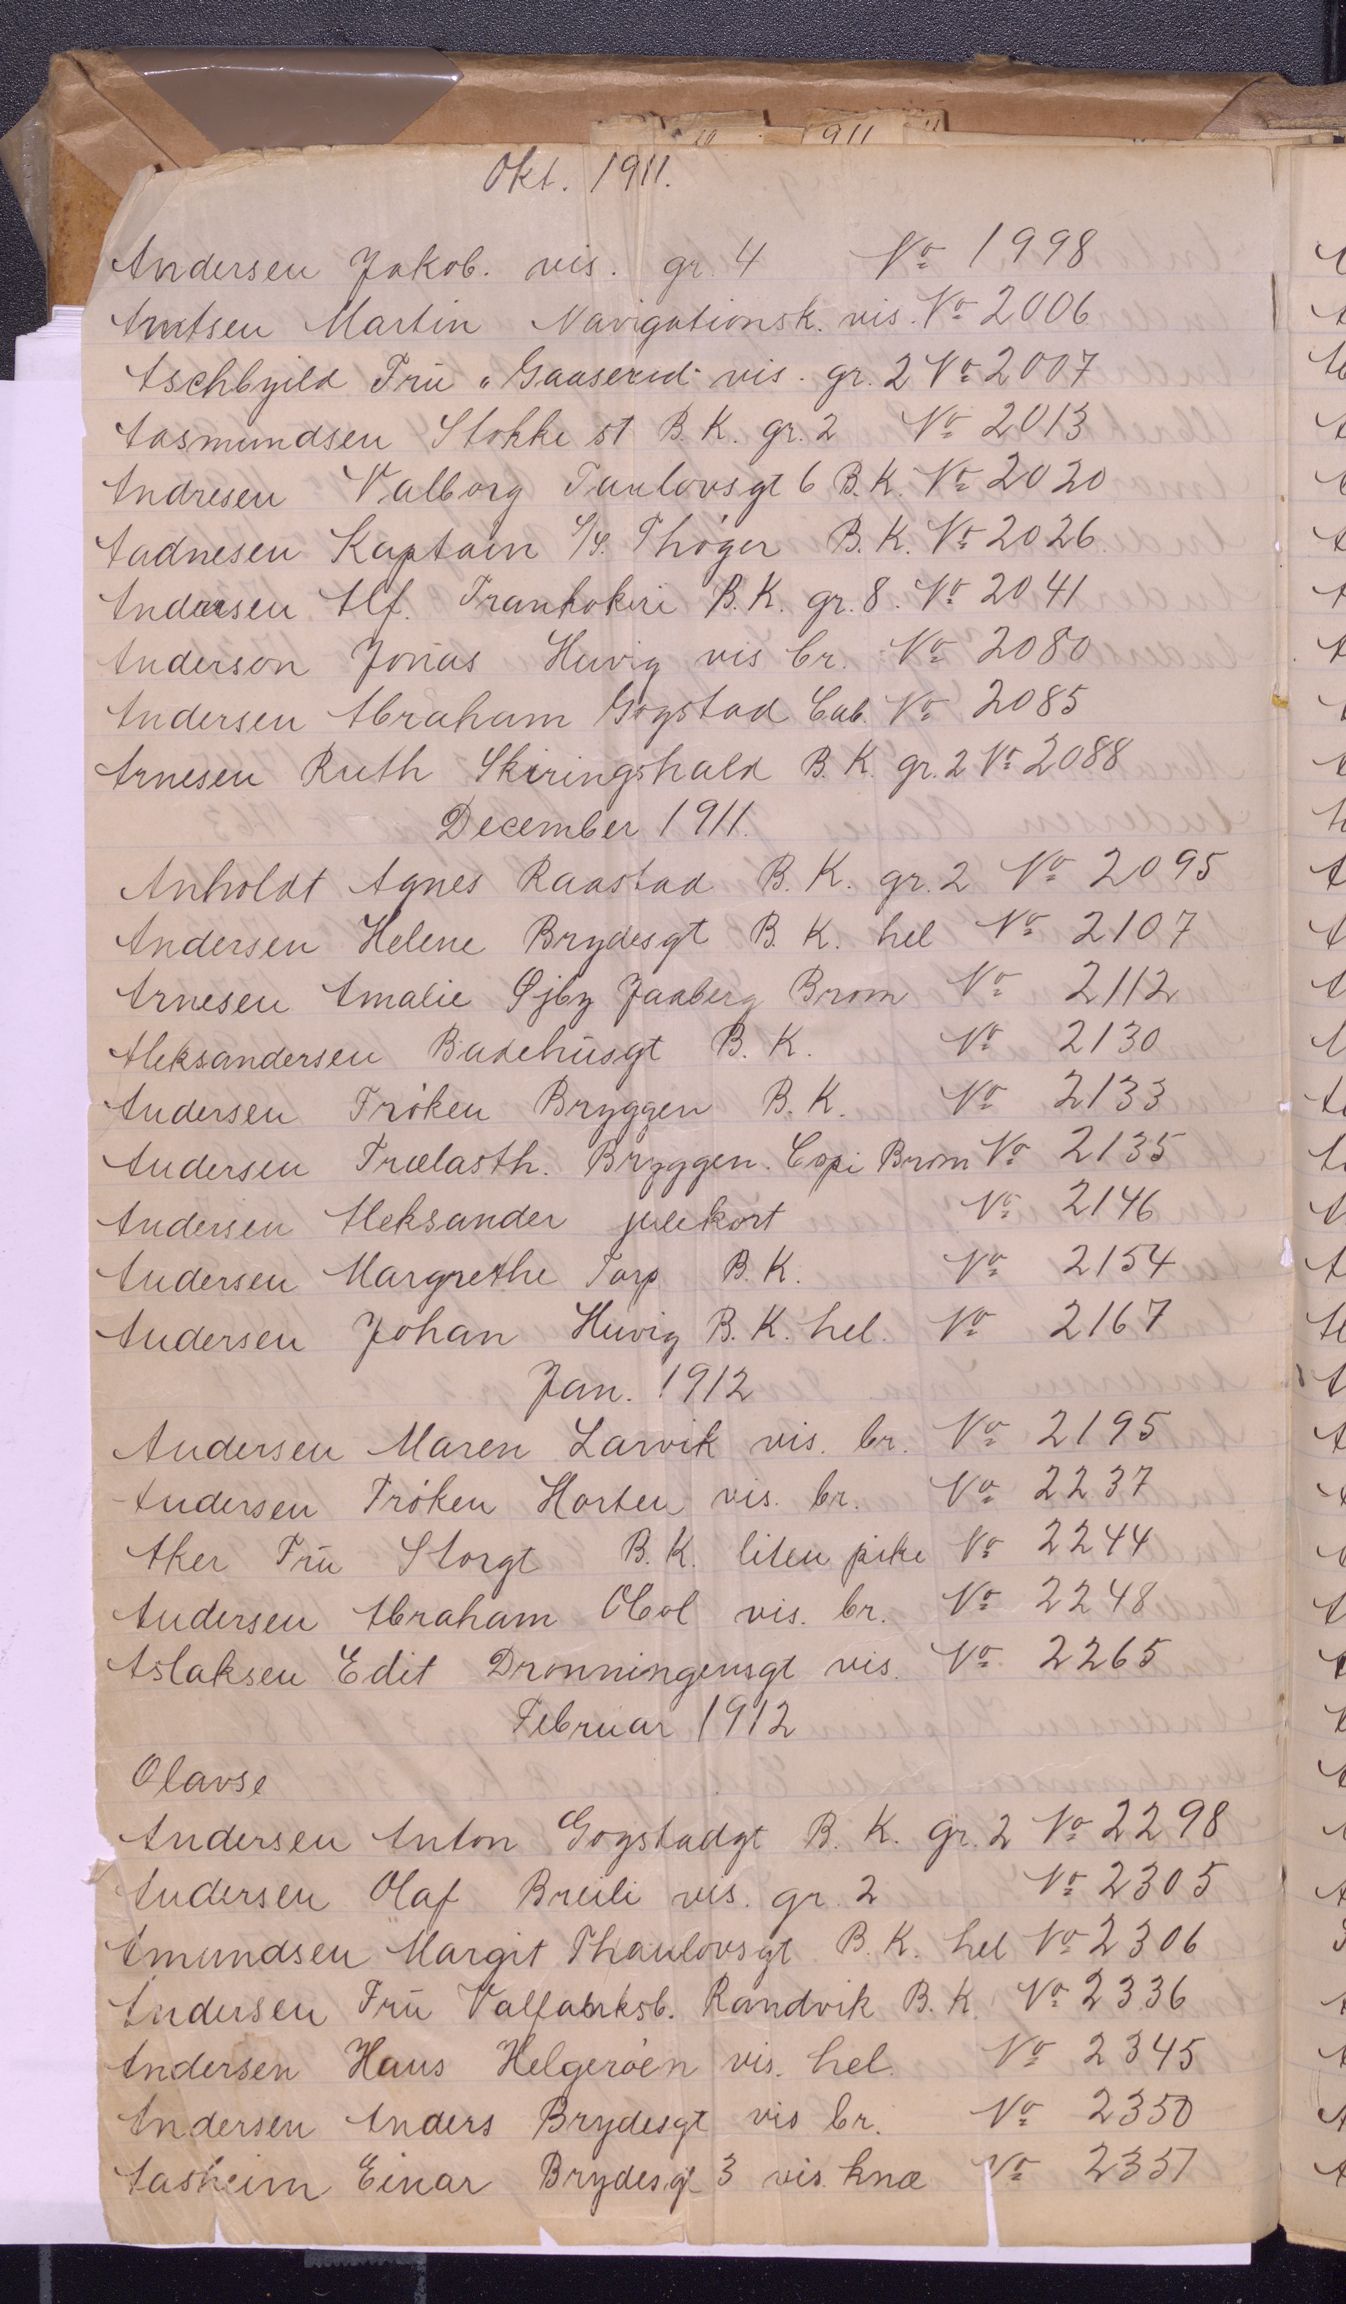 10 1911 11
Okt. 1911.
Andersen Jakob. vis. gr. 4 No 1998
Arntsen Martin Navigationsk. vis. No 2006
Aschbjild Frü "Gaaserød" vis. gr. 2 No 2007
Aasmundsen Stokke st B. K. gr. 2 No 2013
Andresen Valborg Taulovsgt 6 B. K. No 2020
Aadnesen Kaptain S/S. Thöger B. K. No 2026
Andersen Alf. Frankokeri B. K. gr. 8. No 2041
Anderson Jonas Huvig vis br. No 2080
Andersen Abraham Gogstad Cab. No 2085
Arnesen Ruth Skiringshald B. K. gr. 2 No 2088
December 1911.
Anholdt Agnes Raastad B. K. gr. 2 No 2095
Andersen Helene Brydesgt B. K. hel No 2107
Arnesen Amalie Sjby Jaaberg Brom No 2112
Aleksandersen Badehüsgt B. K. No 2130
Andersen Fröken Bryggen B. K. No 2133
Andersen Trælasth. Bryggen. Copi Brom No 2135
Andersen Aleksander julekort No 2146
Andersen Margrethe Torp B. K. No 2154
Andersen Johan Huvig B. K. hel. No 2167
Jan. 1912
Andersen Maren Larvik vis. br. No 2195
Andersen Fröken Horten vis. br. No 2237
Aker Frü Storgt B. K. liten pike No 2244
Andersen Abraham vis. br. No 2248
Aslaksen Edit Dronningensgt vis. No 2265
Februar 1912
Olavse
Andersen Anton Gogstadgt B. K. gr. 2 No 2298
Andersen Olaf Breili vis. gr. 2 No 2305
Amundsen Margit Thaulovsgt B. K. hel No 2306
Andersen Frü Valfabrksb. Randvik B. K. No 2336
Andersen Hans Helgeröen vis. hel. No 2345
Andersen Anders Brydesgt vis br. No 2350
Aasheim Einar Brydesgt 3 vis. knæ No 2351